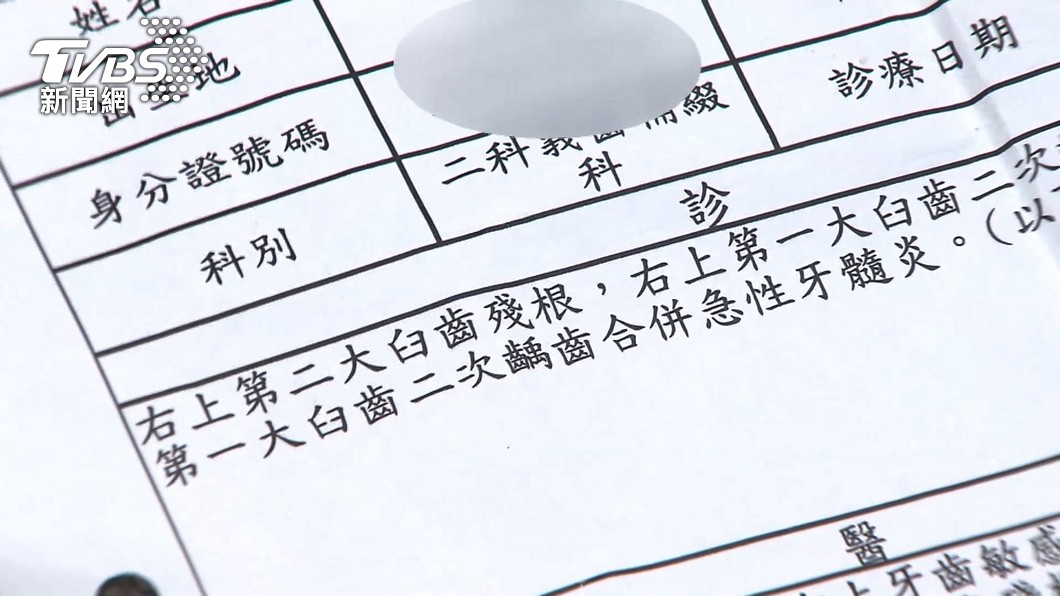 TVBS
新聞網
姓名
地
身分證號碼
診療日期
科別
二科義齒補綴
科
診
右上第二大臼齒殘根，右上第一大臼齒二次
第一大臼齒二次齲齒合併急性牙髓炎。（以
醫
上牙齒敏感